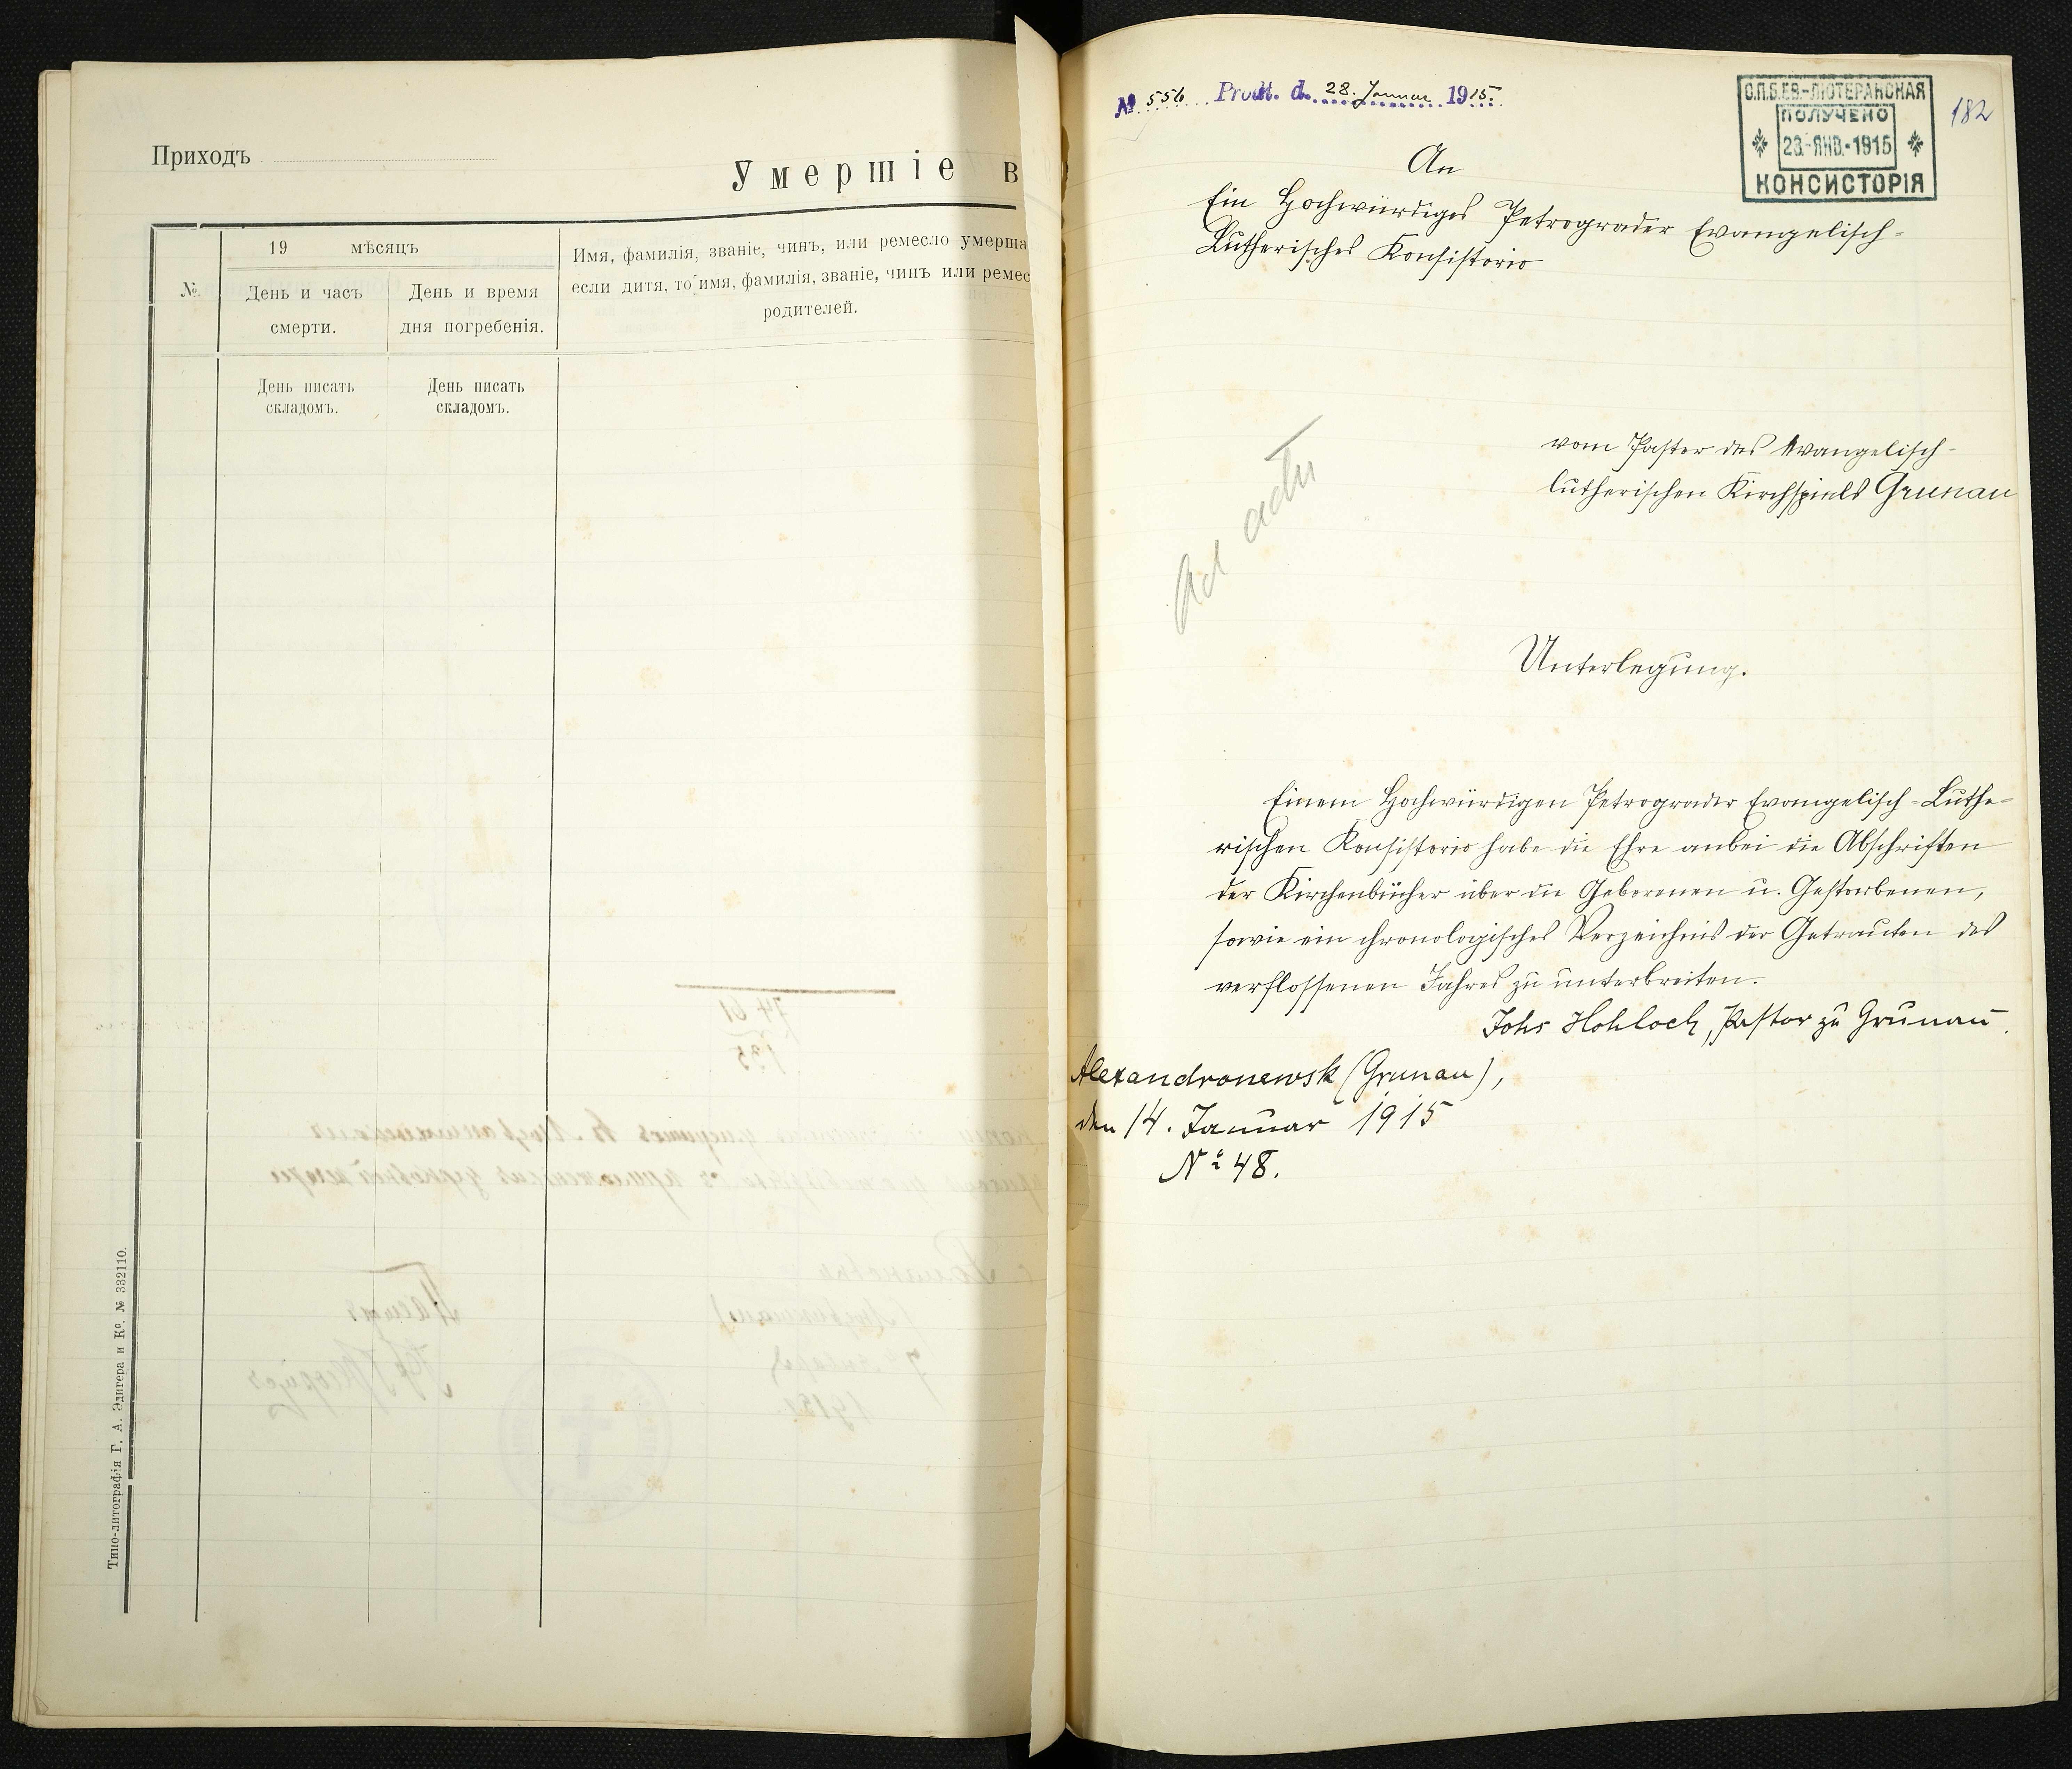 Приходъ
Умершіе в
№.
19 мѣсяцъ
День и часъ
смерти.
День и время
дня погребенія.
Имя, фамилія, званіе, чинъ, или ремесло умерша
если дитя, то имя, фамилія, званіе, чинъ или ремес
родителей.
День писать
складомъ.
День писать
складомъ.
Типо-литографія Г. А. Эдигера и Кº. № 332110.
№ 556 Prod. d. 28. Januar 1915.
С.П.Б.ЕВ.-ЛЮТЕРАНСКАЯ
ПОЛУЧЕНО
23.-ЯНВ.-1915
КОНСИСТОРІЯ
182
An
Ein Hochwürdiges Petrograder Evangelisch-
Lutherisches Konsistorio
vom Pastor des Evangelisch-
lutherischen Kirchspiels Grunau
Ad acta
Unterlegung.
Einem Hochwürdigen Petrograder Evangelisch-Luthe-
rischen Konsistorio habe die Ehre anbei die Abschriften
der Kirchenbücher über die Geborenen u. Gestorbenen,
sowie ein chronologisches Verzeichnis der Getrauten des
verflossenen Jahres zu unterbreiten.
Johs Hohloch, Pastor zu Grunau.
Alexandronewsk (Grunau),
den 14. Januar 1915
Nº 48.